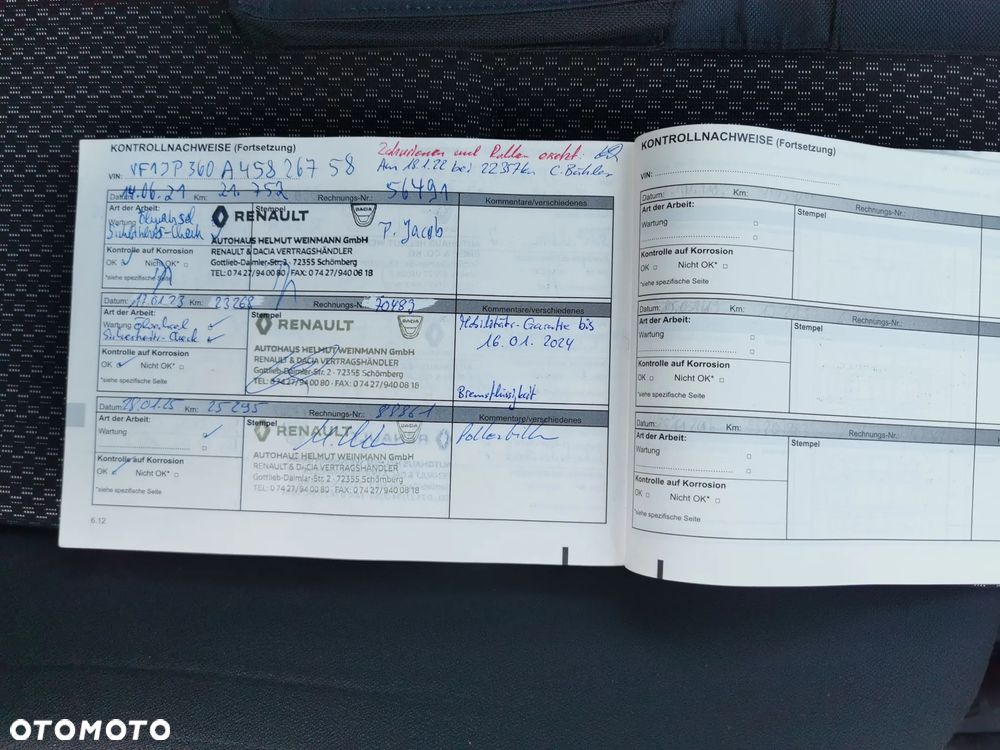 KONTROLLNACHWEISE (Fortsetzung)
Zahnriemen und Rollen ersetzt:
VIN: VF1JP360A45826758
Am 18.1.22 bei 22357km C. Bühler
Datum: 14.06.21 Km: 21.752 Rechnungs-Nr.: 56491
Kommentare/verschiedenes
Art der Arbeit:
Stempel
Wartung Ölwechsel
Sicherheits-Check
RENAULT
DACIA
P. Jacob
AUTOHAUS HELMUT WEINMANN GmbH
RENAULT & DACIA VERTRAGSHÄNDLER
Gottlieb-Daimler-Str. 2 · 72355 Schömberg
TEL: 0 74 27/94 00 80 · FAX: 0 74 27/940 08 18
Kontrolle auf Korrosion
OK Nicht OK*
*siehe spezifische Seite
Datum: 17.01.23 Km: 23268 Rechnungs-Nr. 70489
Kommentare/verschiedenes
Art der Arbeit:
Stempel
Wartung Ölwechsel
Sicherheits-Check
RENAULT
DACIA
Mobilitäts-Garantie bis
16.01.2024
AUTOHAUS HELMUT WEINMANN GmbH
RENAULT & DACIA VERTRAGSHÄNDLER
Gottlieb-Daimler-Str. 2 · 72355 Schömberg
TEL: 0 74 27/94 00 80 · FAX: 0 74 27/940 08 18
Kontrolle auf Korrosion
OK Nicht OK*
*siehe spezifische Seite
Bremsflüssigkeit
Datum: 28.01.25 Km: 25295 Rechnungs-Nr.: 88861
Kommentare/verschiedenes
Art der Arbeit:
Stempel
Wartung
RENAULT
DACIA
Pollenfilter
AUTOHAUS HELMUT WEINMANN GmbH
RENAULT & DACIA VERTRAGSHÄNDLER
Gottlieb-Daimler-Str. 2 · 72355 Schömberg
TEL: 0 74 27/94 00 80 · FAX: 0 74 27/940 08 18
Kontrolle auf Korrosion
OK Nicht OK*
*siehe spezifische Seite
6.12
KONTROLLNACHWEISE (Fortsetzung)
VIN:
Datum: Km: Rechnungs-Nr.:
Art der Arbeit:
Stempel
Wartung
Kontrolle auf Korrosion
OK Nicht OK*
*siehe spezifische Seite
Datum: Km: Rechnungs-Nr.:
Art der Arbeit:
Stempel
Wartung
Kontrolle auf Korrosion
OK Nicht OK*
*siehe spezifische Seite
Datum: Km: Rechnungs-Nr.:
Art der Arbeit:
Stempel
Wartung
Kontrolle auf Korrosion
OK Nicht OK*
*siehe spezifische Seite
OTOMOTO